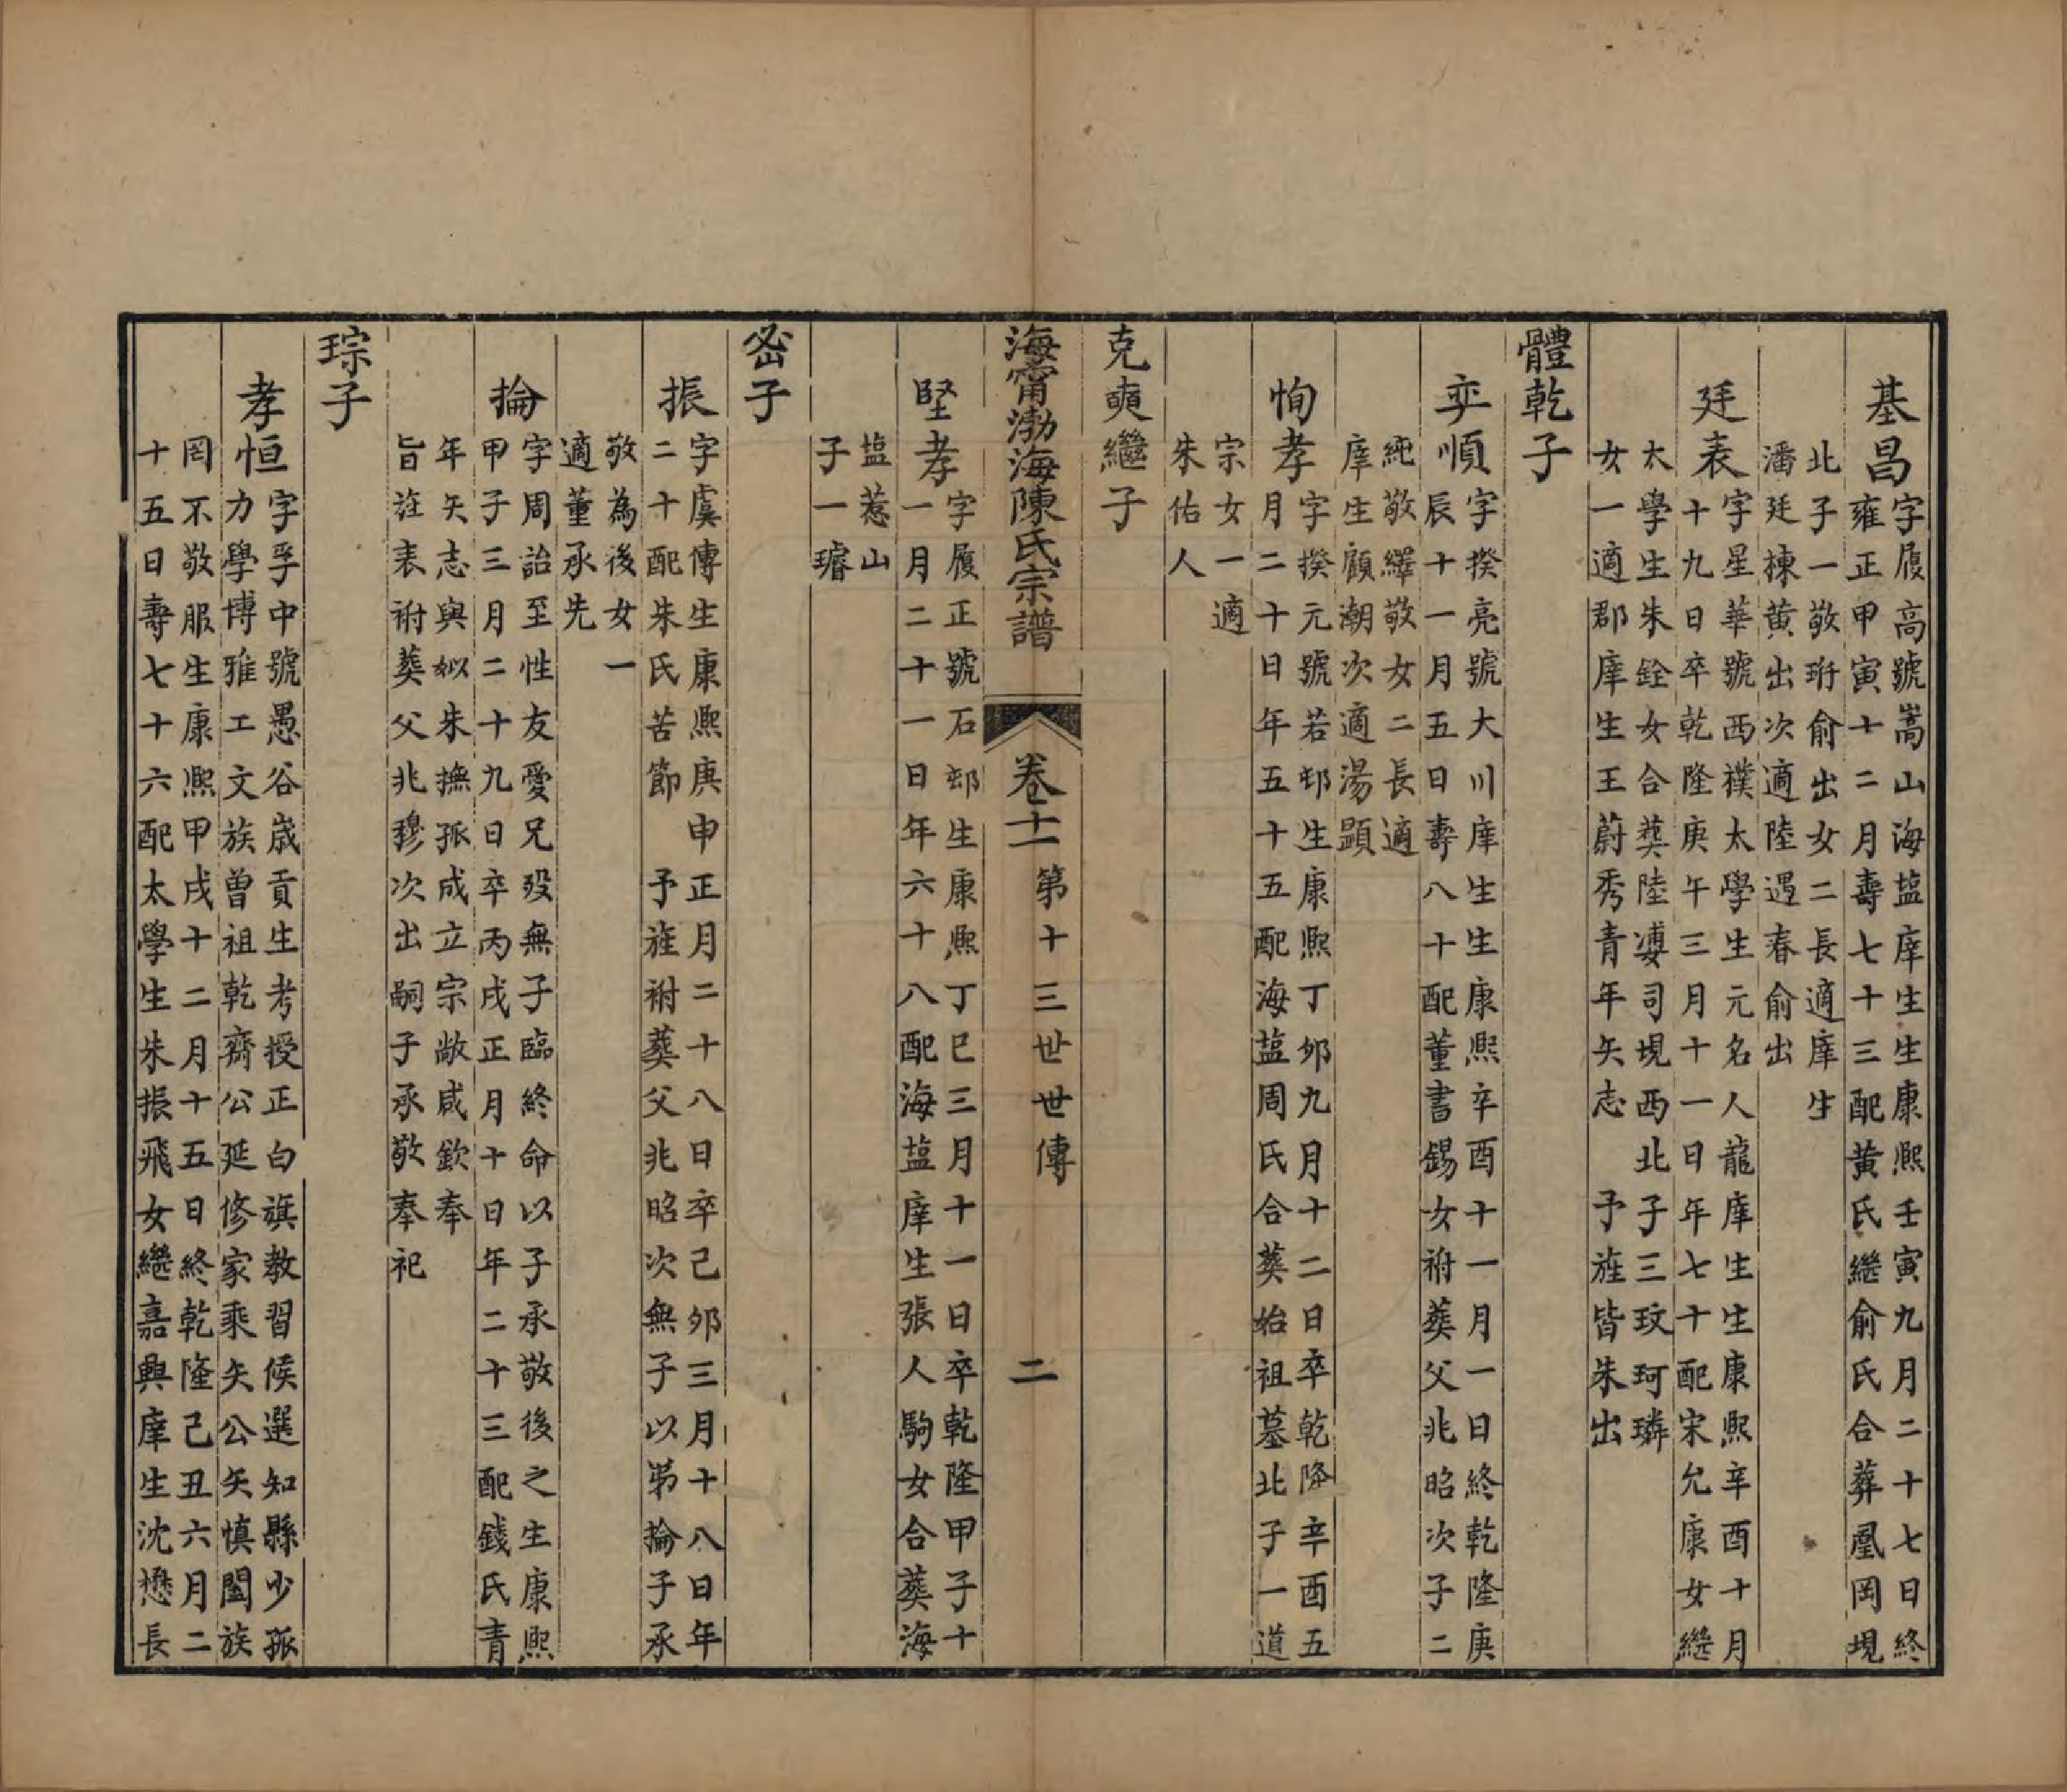 基昌
字履高號嵩山海盐庠生生康熙壬寅九月二十七日終
雍正甲寅十二月壽七十三配黄氏繼俞氏合葬凰岡垷
北子一敬珩俞出女二長適庠生
潘廷棟黄出次適陸遇春俞出
廷表
字星華號西襆太學生元名人龍庠生生康熙辛酉十月
十九日卒乾隆庚午三月十一日年七十配宋允康女繼
太學生朱銓女合葬陸婆司垷西北子三玟珂璘
女一適郡庠生王蔚秀青年矢志 予旌皆朱出
體乾子
弈順
字揆亮號大川庠生生康熙辛酉十一月一日終乾隆庚
辰十一月五日壽八十配董書錫女祔葬父兆昭次子二
純敬繹敬女二長適
庠生顧潮次適湯顕
恂孝
字揆元號若邨生康熙丁卯九月十二日卒乾隆辛酉五
月二十日年五十五配海盐周氏合葬始祖墓北子一道
宗女一適
朱佑人
克奭繼子
海甯渤海陳氏宗譜
卷十一 第十三世世傳 二
堅孝
字履正號石邨生康熙丁巳三月十一日卒乾隆甲子十
一月二十一日年六十八配海盐庠生張人駒女合葬海
盐惹山
子一璿
密子
振
字虞傳生康熙庚申正月二十八日卒己卯三月十八日年
二十配朱氏苦節 予旌祔葬父兆昭次無子以弟掄子承
敬為後女一
適董承先
掄
字周詒至性友愛兄殁無子臨終命以子承敬後之生康熙
甲子三月二十九日卒丙戌正月十日年二十三配錢氏青
年矢志與姒朱撫孤成立宗敞咸欽奉
旨旌表祔葬父兆穆次出嗣子承敬奉祀
琮子
孝恒
字孚中號愚谷歲貢生考授正白旗教習候選知縣少孤
力學博雅工文族曾祖乾齋公延修家乘矢公矢慎闔族
罔不敬服生康熙甲戌十二月十五日終乾隆己丑六月二
十五日壽七十六配太學生朱振飛女繼嘉興庠生沈懋長